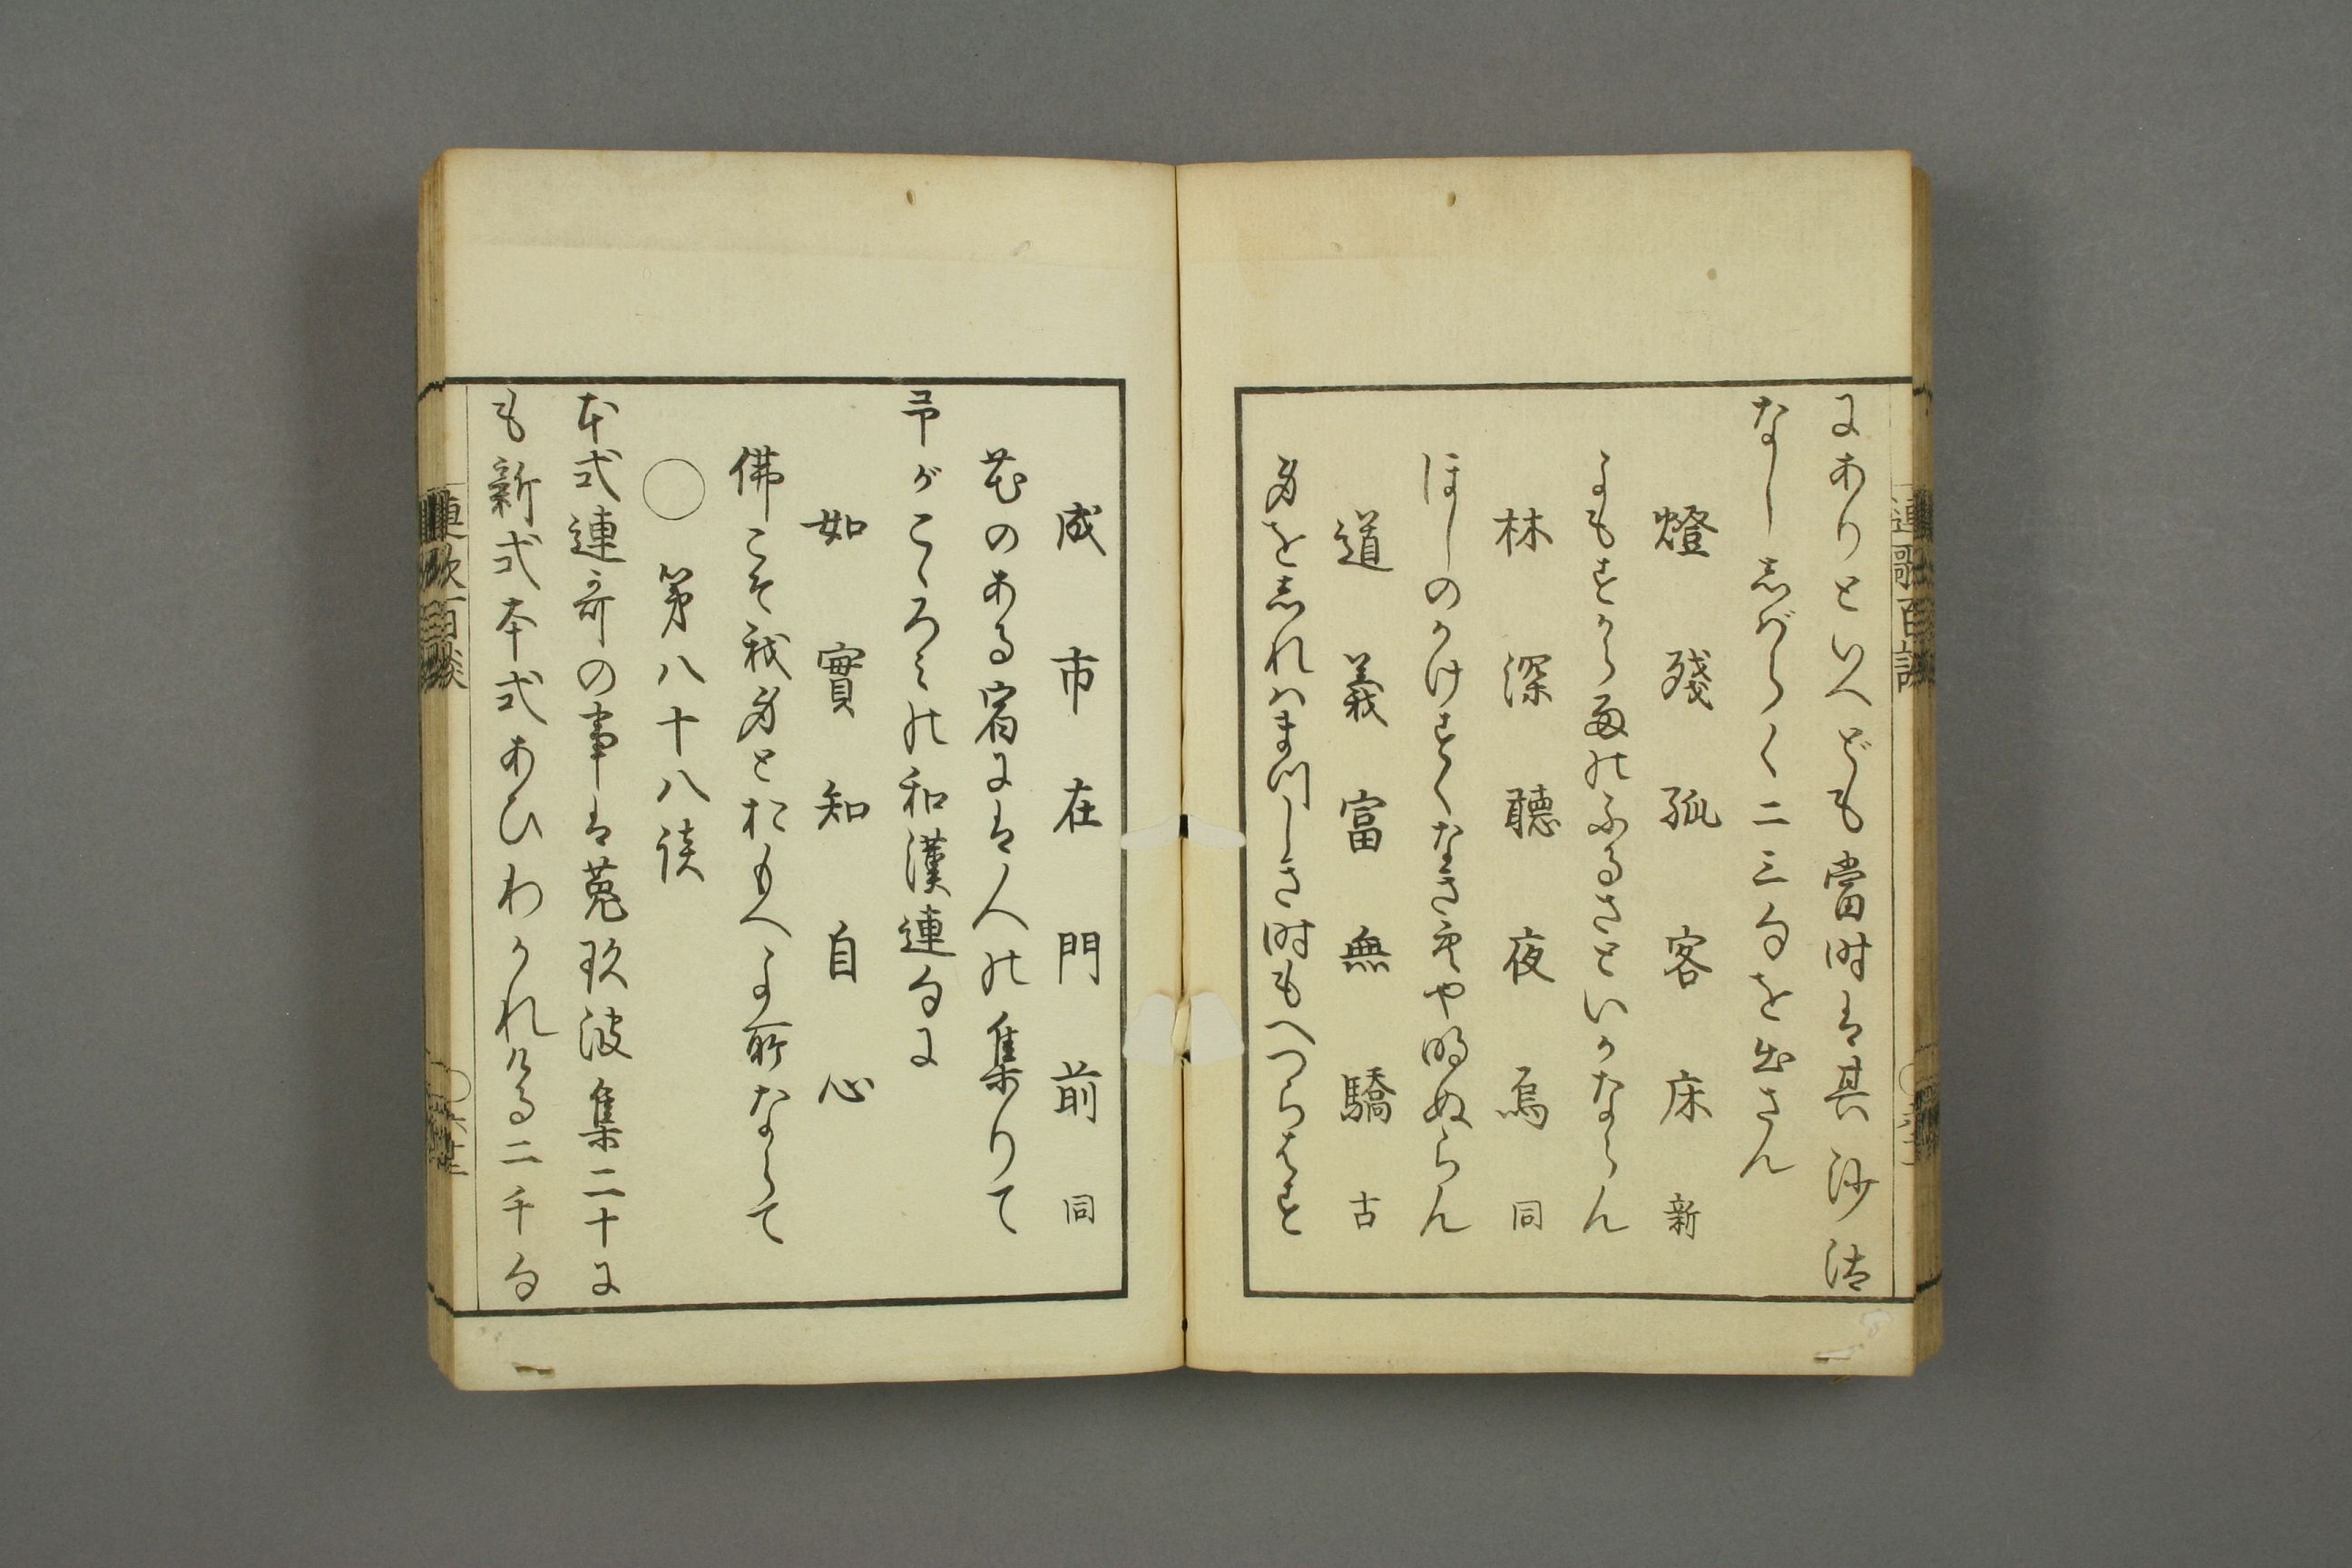 にありといへども當時は其沙汰
なししばらく二三句を出さん
燈殘孤客床 新
よもすから雨のふるさといかならん
林深聽夜烏 同
ほしのかけすくなき空や明ぬらん
道義富無驕 古
身をしれはまつしき時もへつらはす
成市在門前 同
花のある宿には人の集りて
予がこゝろみの和漢連句に
如實知自心
佛こそ我身とおもへよ所ならて
◯ 第八十八談
本式連哥の事は菟玖波集二十に
も新式本式あひわかれける二千句
連歌百談
連歌百談